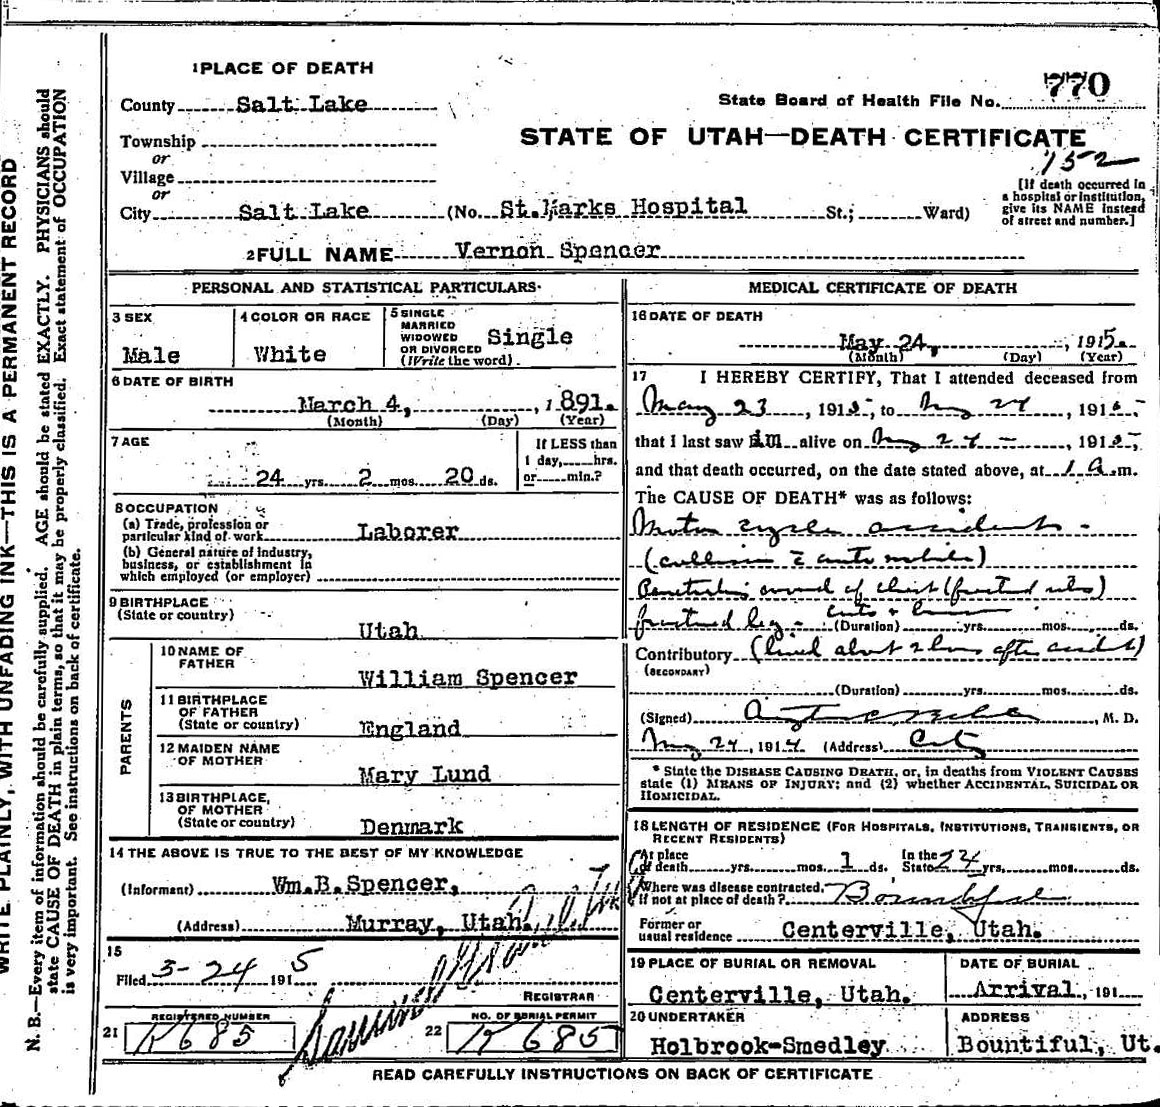 1 PLACE OF DEATH
770
County Salt Lake
State Board of Health File No.
Township
STATE OF UTAH—DEATH CERTIFICATE
or
152
Village
or
[If death occurred in
a hospital or institution,
give its NAME instead
of street and number.]
City Salt Lake (No. St. Marks Hospital St.; Ward)
2 FULL NAME Vernon Spencer
PERSONAL AND STATISTICAL PARTICULARS
3 SEX
Male
4 COLOR OR RACE
White
5 SINGLE
MARRIED
WIDOWED
OR DIVORCED
(Write the word)
Single
6 DATE OF BIRTH
March 4, 1891.
(Month) (Day) (Year)
7 AGE
24 yrs. 2 mos. 20 ds.
If LESS than
1 day, hrs.
or min.?
8 OCCUPATION
(a) Trade, profession or
particular kind of work Laborer
(b) General nature of industry,
business, or establishment in
which employed (or employer)
9 BIRTHPLACE
(State or country)
Utah
PARENTS
10 NAME OF
FATHER
William Spencer
11 BIRTHPLACE
OF FATHER
(State or country)
England
12 MAIDEN NAME
OF MOTHER
Mary Lund
13 BIRTHPLACE
OF MOTHER
(State or country)
Denmark
14 THE ABOVE IS TRUE TO THE BEST OF MY KNOWLEDGE
(Informant) Wm.B.Spencer,
(Address) Murray, Utah.
15
Filed 3-24 1915
REGISTRAR
21 REGISTERED NUMBER
685
22 NO. OF BURIAL PERMIT
685
MEDICAL CERTIFICATE OF DEATH
16 DATE OF DEATH
May 24, 1915.
(Month) (Day) (Year)
17 I HEREBY CERTIFY, That I attended deceased from
May 23, 1915, to May 24, 1915,
that I last saw him alive on May 24, 1915,
and that death occurred, on the date stated above, at 1 a.m.
The CAUSE OF DEATH* was as follows:
Motor cycle accident -
(collision c automobile)
Penetrating wound of chest (fractured ribs)
fractured leg - cuts &
(Duration) yrs. mos. ds.
Contributory (lived about 2 hours after accident)
(SECONDARY)
(Duration) yrs. mos. ds.
(Signed) M. D.
May 24, 1914 (Address) City
* State the DISEASE CAUSING DEATH, or, in deaths from VIOLENT CAUSES
state (1) MEANS OF INJURY; and (2) whether ACCIDENTAL, SUICIDAL OR
HOMICIDAL.
18 LENGTH OF RESIDENCE (FOR HOSPITALS, INSTITUTIONS, TRANSIENTS, OR
RECENT RESIDENTS)
At place
of death yrs. mos. 1 ds.
In the
State 24 yrs. mos. ds.
Where was disease contracted,
if not at place of death?
Former or
usual residence Centerville, Utah.
19 PLACE OF BURIAL OR REMOVAL
Centerville, Utah.
DATE OF BURIAL
Arrival, 191
20 UNDERTAKER
Holbrook-Smedley
ADDRESS
Bountiful, Ut.
READ CAREFULLY INSTRUCTIONS ON BACK OF CERTIFICATE
WRITE PLAINLY, WITH UNFADING INK—THIS IS A PERMANENT RECORD
N. B.—Every item of information should be carefully supplied. AGE should be stated EXACTLY. PHYSICIANS should
state CAUSE OF DEATH in plain terms, so that it may be properly classified. Exact statement of OCCUPATION
is very important. See instructions on back of certificate.